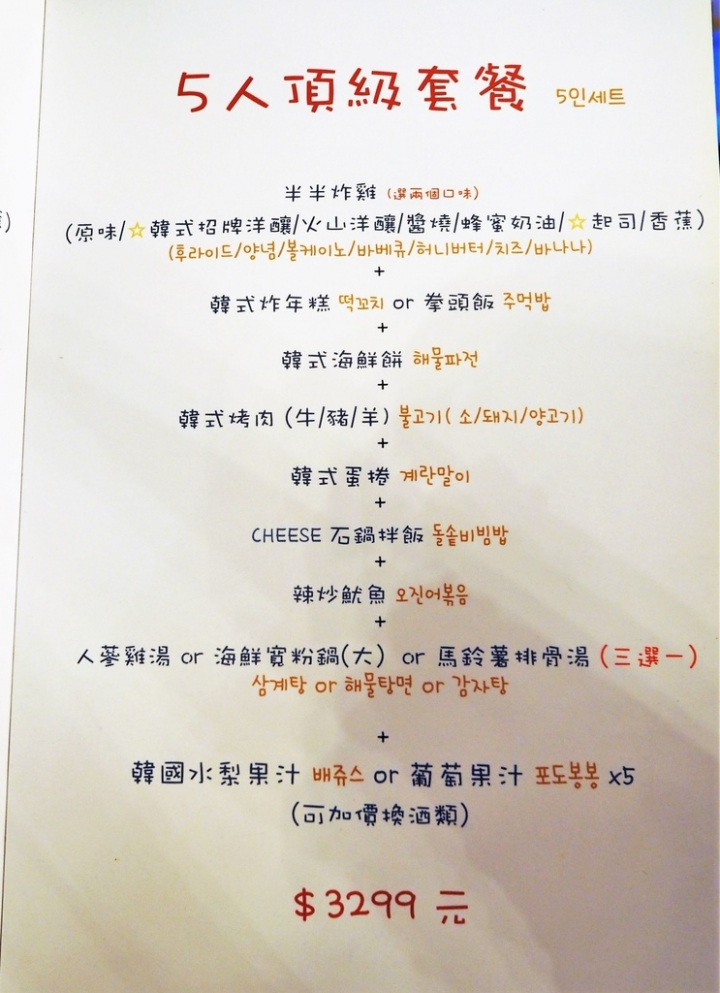 5人頂級套餐 5인세트
半半炸雞 (選兩個口味)
(原味/☆韓式招牌洋釀/火山洋釀/醬燒/蜂蜜奶油/☆起司/香蕉)
(후라이드/양념/볼케이노/바베큐/허니버터/치즈/바나나)
+
韓式炸年糕 떡꼬치 or 拳頭飯 주먹밥
+
韓式海鮮餅 해물파전
+
韓式烤肉 (牛/豬/羊) 불고기( 소/돼지/양고기)
+
韓式蛋捲 계란말이
+
CHEESE 石鍋拌飯 돌솥비빔밥
+
辣炒魷魚 오진어볶음
+
人蔘雞湯 or 海鮮寬粉鍋(大) or 馬鈴薯排骨湯 (三選一)
삼계탕 or 해물탕면 or 감자탕
+
韓國水梨果汁 배쥬스 or 葡萄果汁 포도봉봉 x5
(可加價換酒類)
$3299 元
)